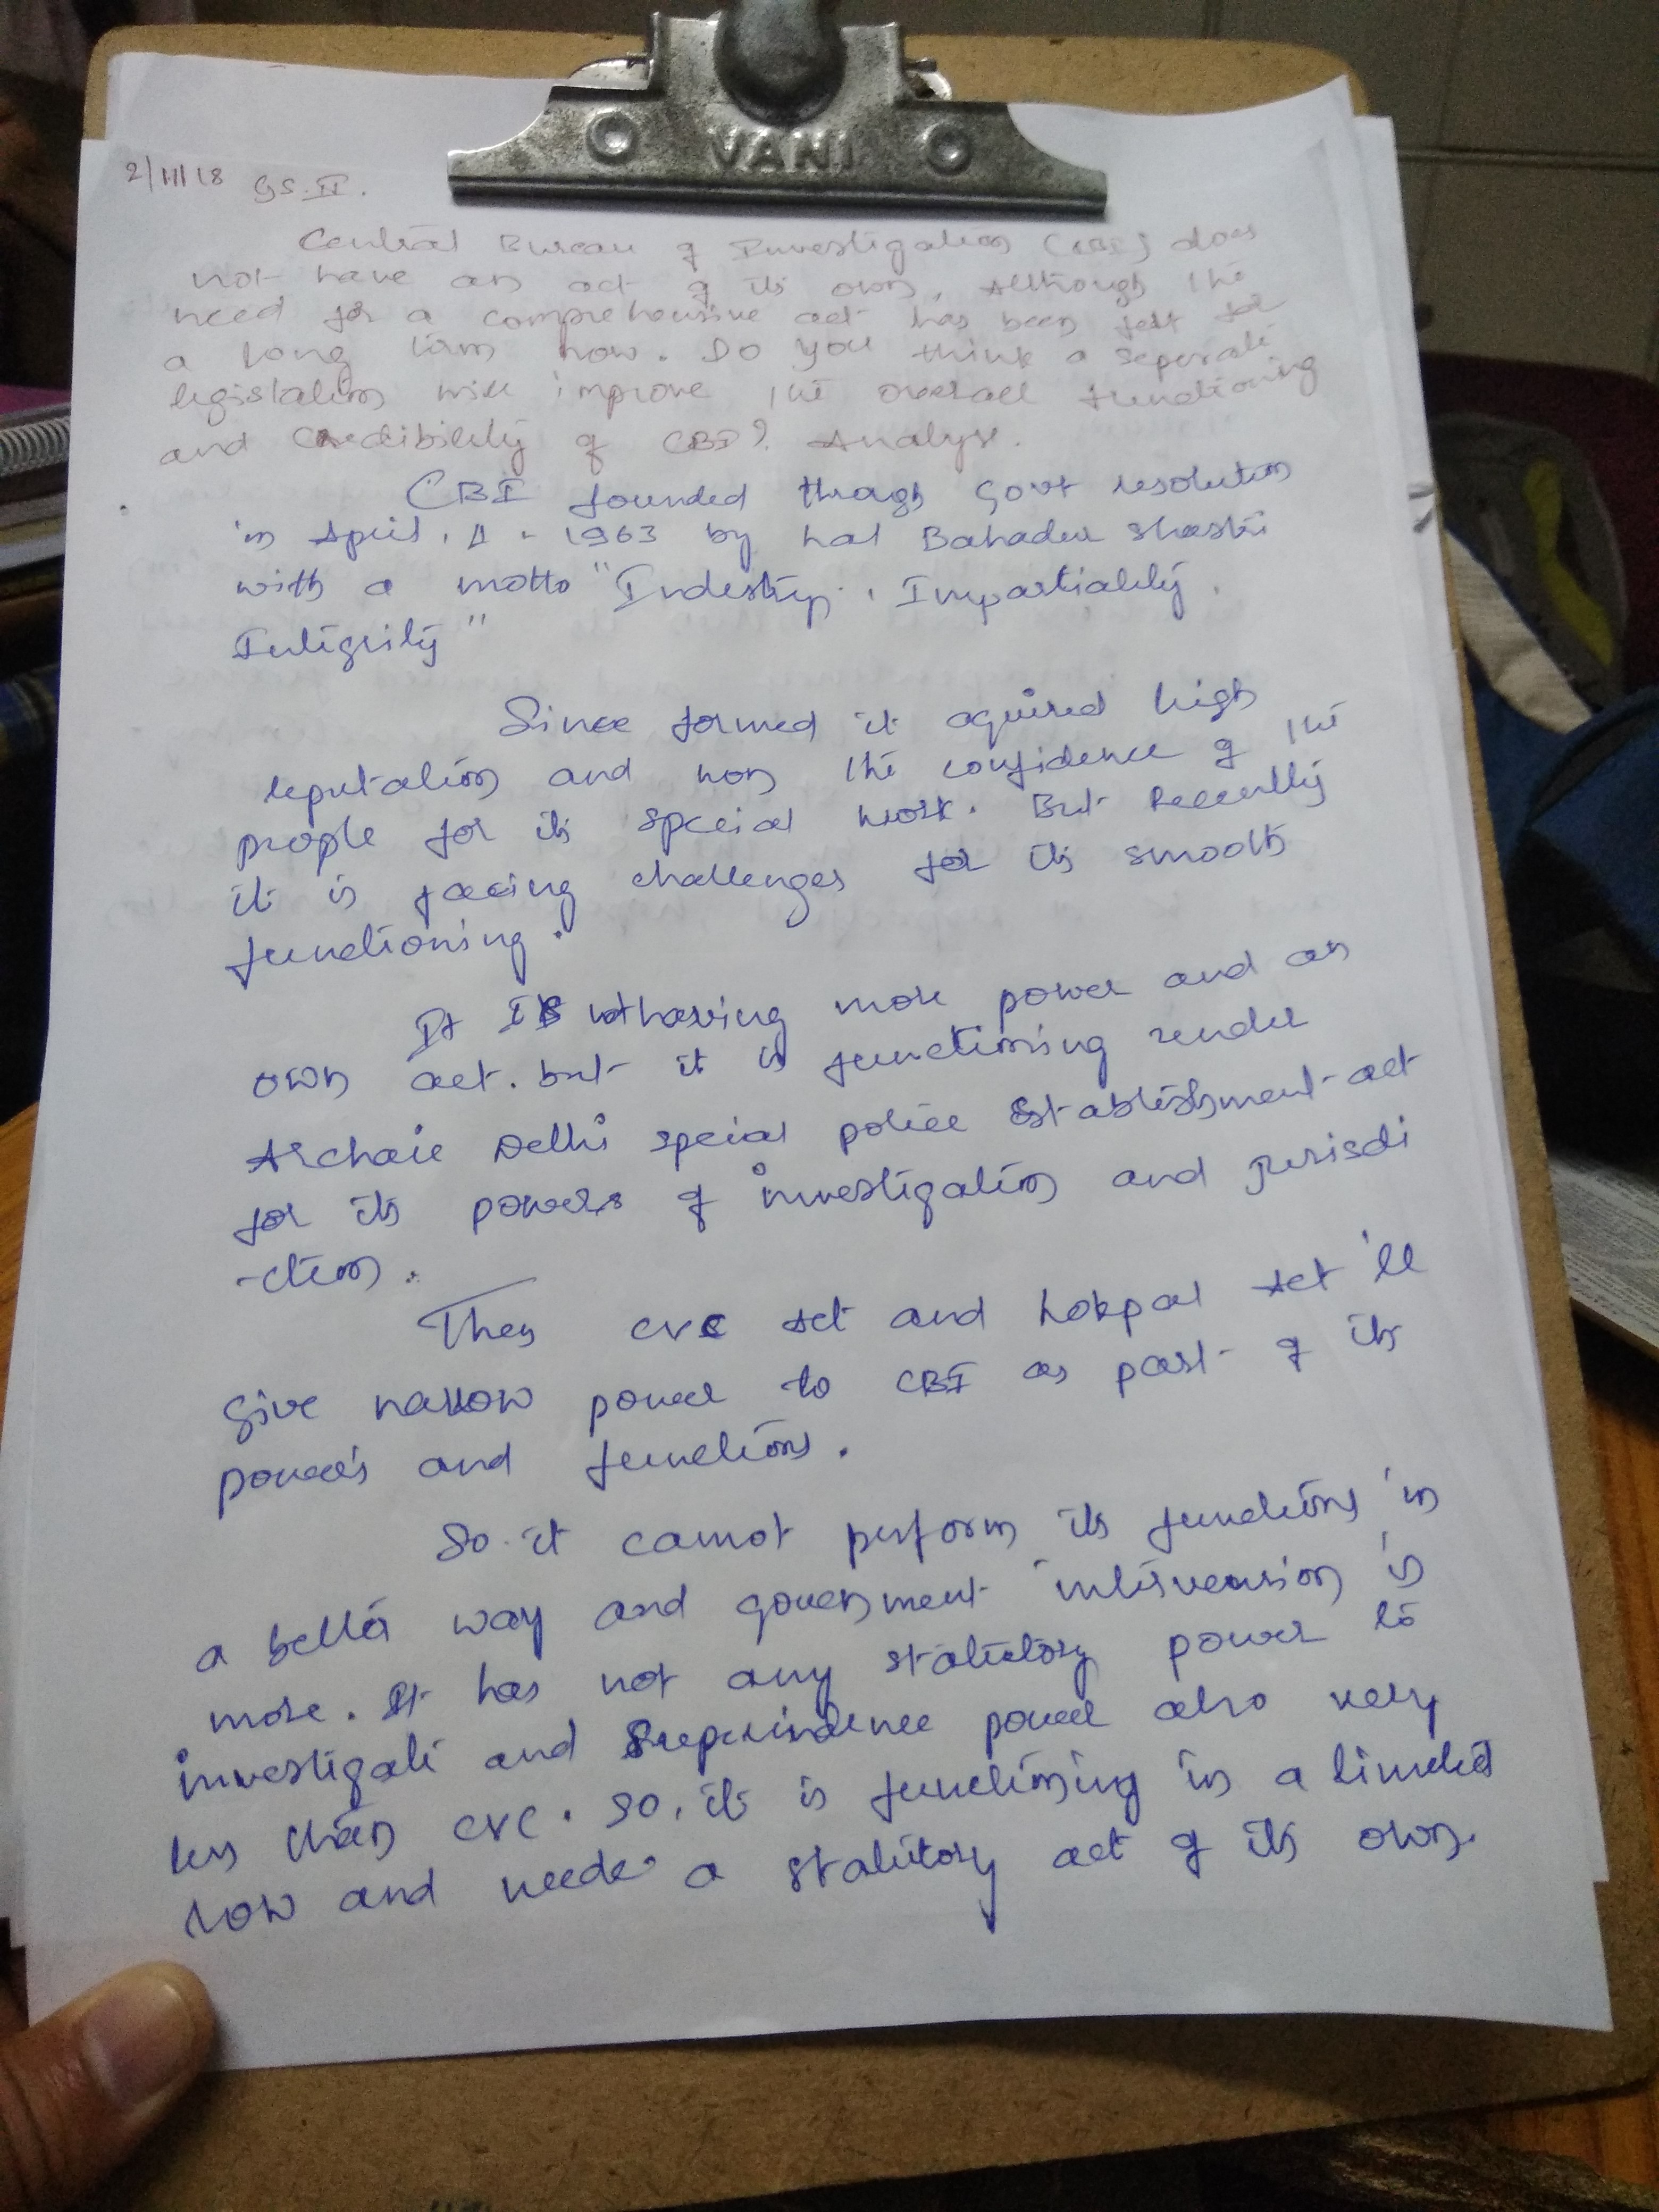 VANI
2/11/18 GS-II.
Central Bureau of Investigation (CBI) does
not have an act of its own, Although the
need for a comprehensive act has been felt for
a long time now. Do you think a seperate
legislation will improve the overall functioning
and Credibility of CBI? Analyse.
CBI founded through Govt resolution
in April, 1 - 1963 by Lal Bahadur Shastri
with a motto "Industry, Impartiality,
Integrity"
Since formed it aquired high
reputation and won the confidence of the
people for its special work. But Recently
it is facing challenges for its smooth
functioning.
It Is nothaving more power and an
own act. but it is functioning under
Archaic Delhi special police Establishment act
for its powers of investigation and jurisdi
-ction.
Then CVC Act and Lokpal Act 'll
give narrow power to CBI as part of its
power's and functions.
So it cannot perform its functions in
a better way and government intervension is
more. It has not any statutory power to
investigate and power also very
less than CVC. So, it is functioning in a limited
now and needs a statutory act of its own.